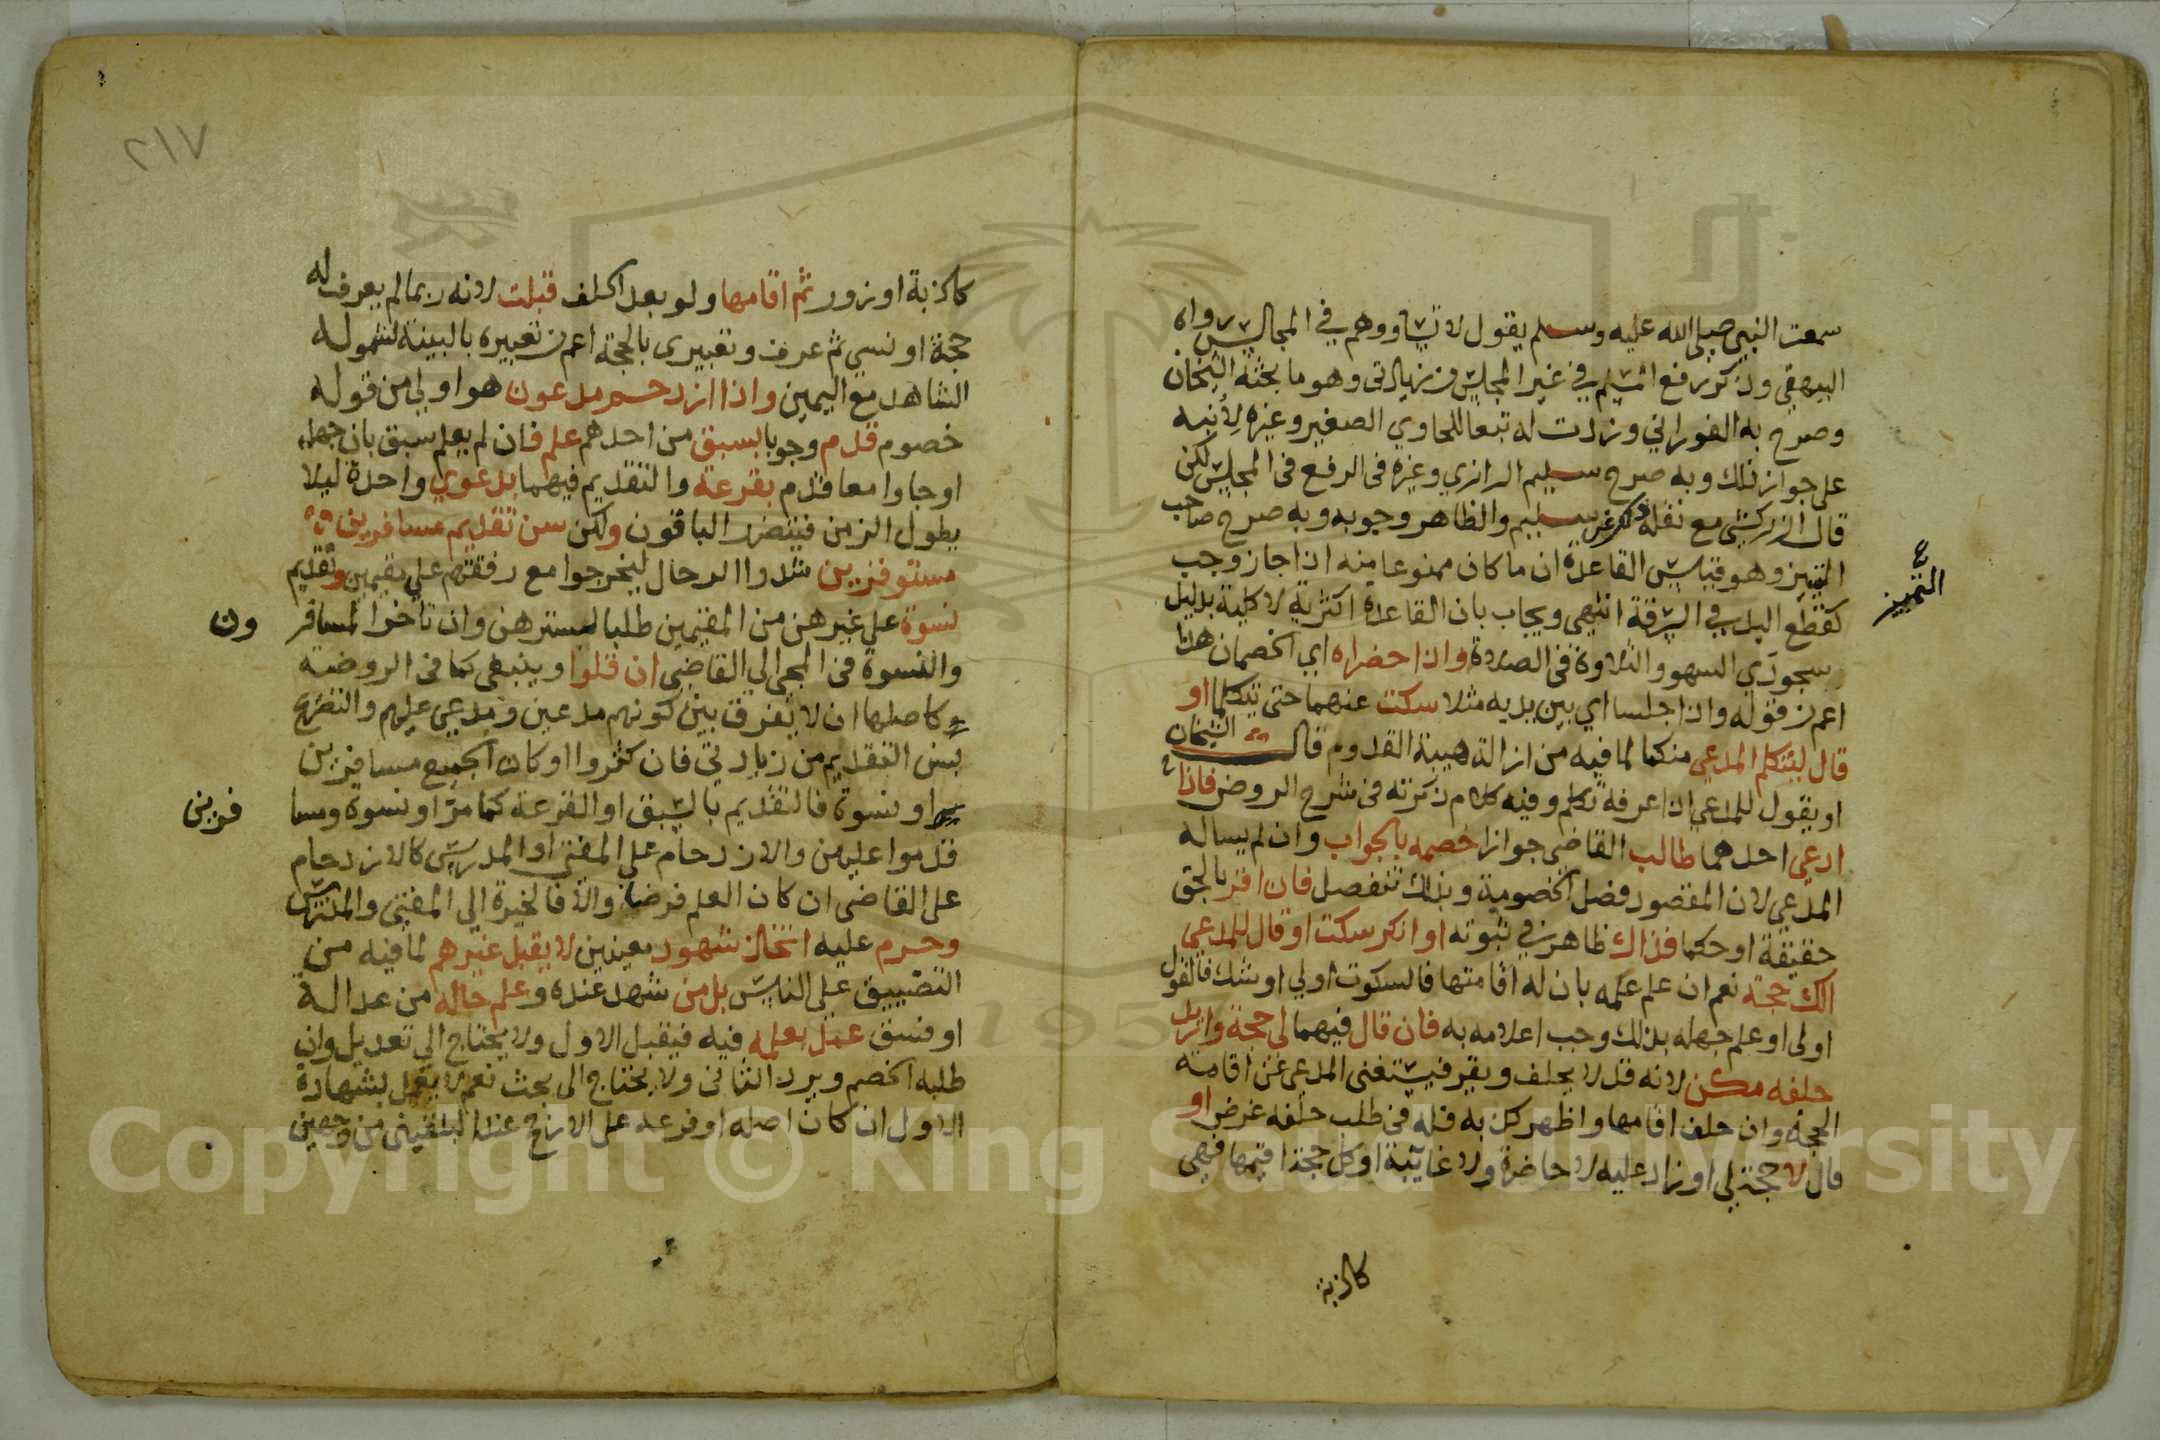 سمعت النبي صلى الله عليه وسلم يقول لا تساووهم في المجالس رواه
البيهقي وذكر رفع المسلم في غير المجلس من زيادتي وهو ما بحثه الشيخان
وصرح به الفوراني وزدت له تبعا للحاوي الصغير وغيره لأنبه
على جواز ذلك وبه صرح سليم الرازي وغيره في الرفع في المجلس لكن
قال الزركشي مع نقله ذلك عن سليم والظاهر وجوبه وبه صرح صاحب
التمييز وهو قياس القاعدة ان ما كان ممنوعا منه اذا جاز وجب
التمييز
كقطع اليد في السرقة انتهى ويجاب بان القاعدة اكثرية لا كلية بدليل
سجودي السهو والتلاوة في الصلاة واذا حضراه اي الخصمان هذا
اعم من قوله واذا جلسا اي بين يديه مثلا سكت عنهما حتى يتكلما او
قال ليتكلم المدعي منكما لما فيه من ازالة هيبة القدوم قال الشيخان
او يقول للمدعي اذا عرفه تكلم وفيه كلام ذكرته في شرح الروض فاذا
ادعى احدهما طالب القاضي جوازا خصمه بالجواب وان لم يساله
المدعي لان المقصود فصل الخصومة وبذلك تنفصل فان اقر بالحق
حقيقة او حكما فذاك ظاهر في ثبوته او انكر سكت او قال للمدعي
الك حجة نعم ان علم علمه بان له اقامتها فالسكوت اولى او شك فالقول
اولى او علم جهله بذلك وجب اعلامه به فان قال فيهما لي حجة واريد
حلفه مكن لانه قد لا يحلف ويقر فيستغني المدعي عن اقامة
الحجة وان حلف اقامها واظهر كذبه فله في طلب حلفه غرض او
قال لا حجة لي او زاد عليه لا حاضرة ولا غايبة او كل حجة اقيمها فهي
كاذبة
٢١٧
كاذبة او زور ثم اقامها ولو بعد الحلف قبلت لانه ربما لم يعرف له
حجة او نسي ثم عرف وتعبيري بالحجة اعم من تعبيره بالبينة لشموله
الشاهد مع اليمين واذا ازدحم مدعون هو اولى من قوله
خصوم قدم وجوبا بسبق من احدهم علم فان لم يعلم سبق بان جهل
او جاوا معا قدم بقرعة والتقديم فيهما بدعوي واحدة ليلا
يطول الزمن فيتضرر الباقون ولكن سن تقديم مسافرين
مستوفزين شدوا الرحال ليخرجوا مع رفقتهم على مقيمين وتقديم
نسوة على غيرهن من المقيمين طلبا لسترهن وان تاخر المسافر
ون
والنسوة في المجي الي القاضي ان قلوا وينبغي كما في الروضة
كاصلها ان لا يفرق بين كونهم مدعين ومدعي عليهم والتصريح
بسن التقديم من زيادتي فان كثروا او كان الجميع مسافرين
او نسوة فالتقديم بالسبق او القرعة كما مر او نسوة ومسا
فرين
قدموا عليهن والازدحام على المفتي او المدرس كالازدحام
على القاضي ان كان العلم فرضا والا فالخيرة الي المفتي والمدرس
وحرم عليه اتخاذ شهود معينين لا يقبل غيرهم لما فيه من
التضييق على الناس بل من شهد عنده وعلم حاله من عدالة
او فسق عمل بعلمه فيه فيقبل الاول ولا يحتاج الي تعديل وان
طلبه الخصم ويرد الثاني ولا يحتاج الى بحث نعم لا يعمل بشهادة
الاول ان كان اصله او فرعه على الارجح عند البلقيني من وجهين
Copyright © King Saud University
1957